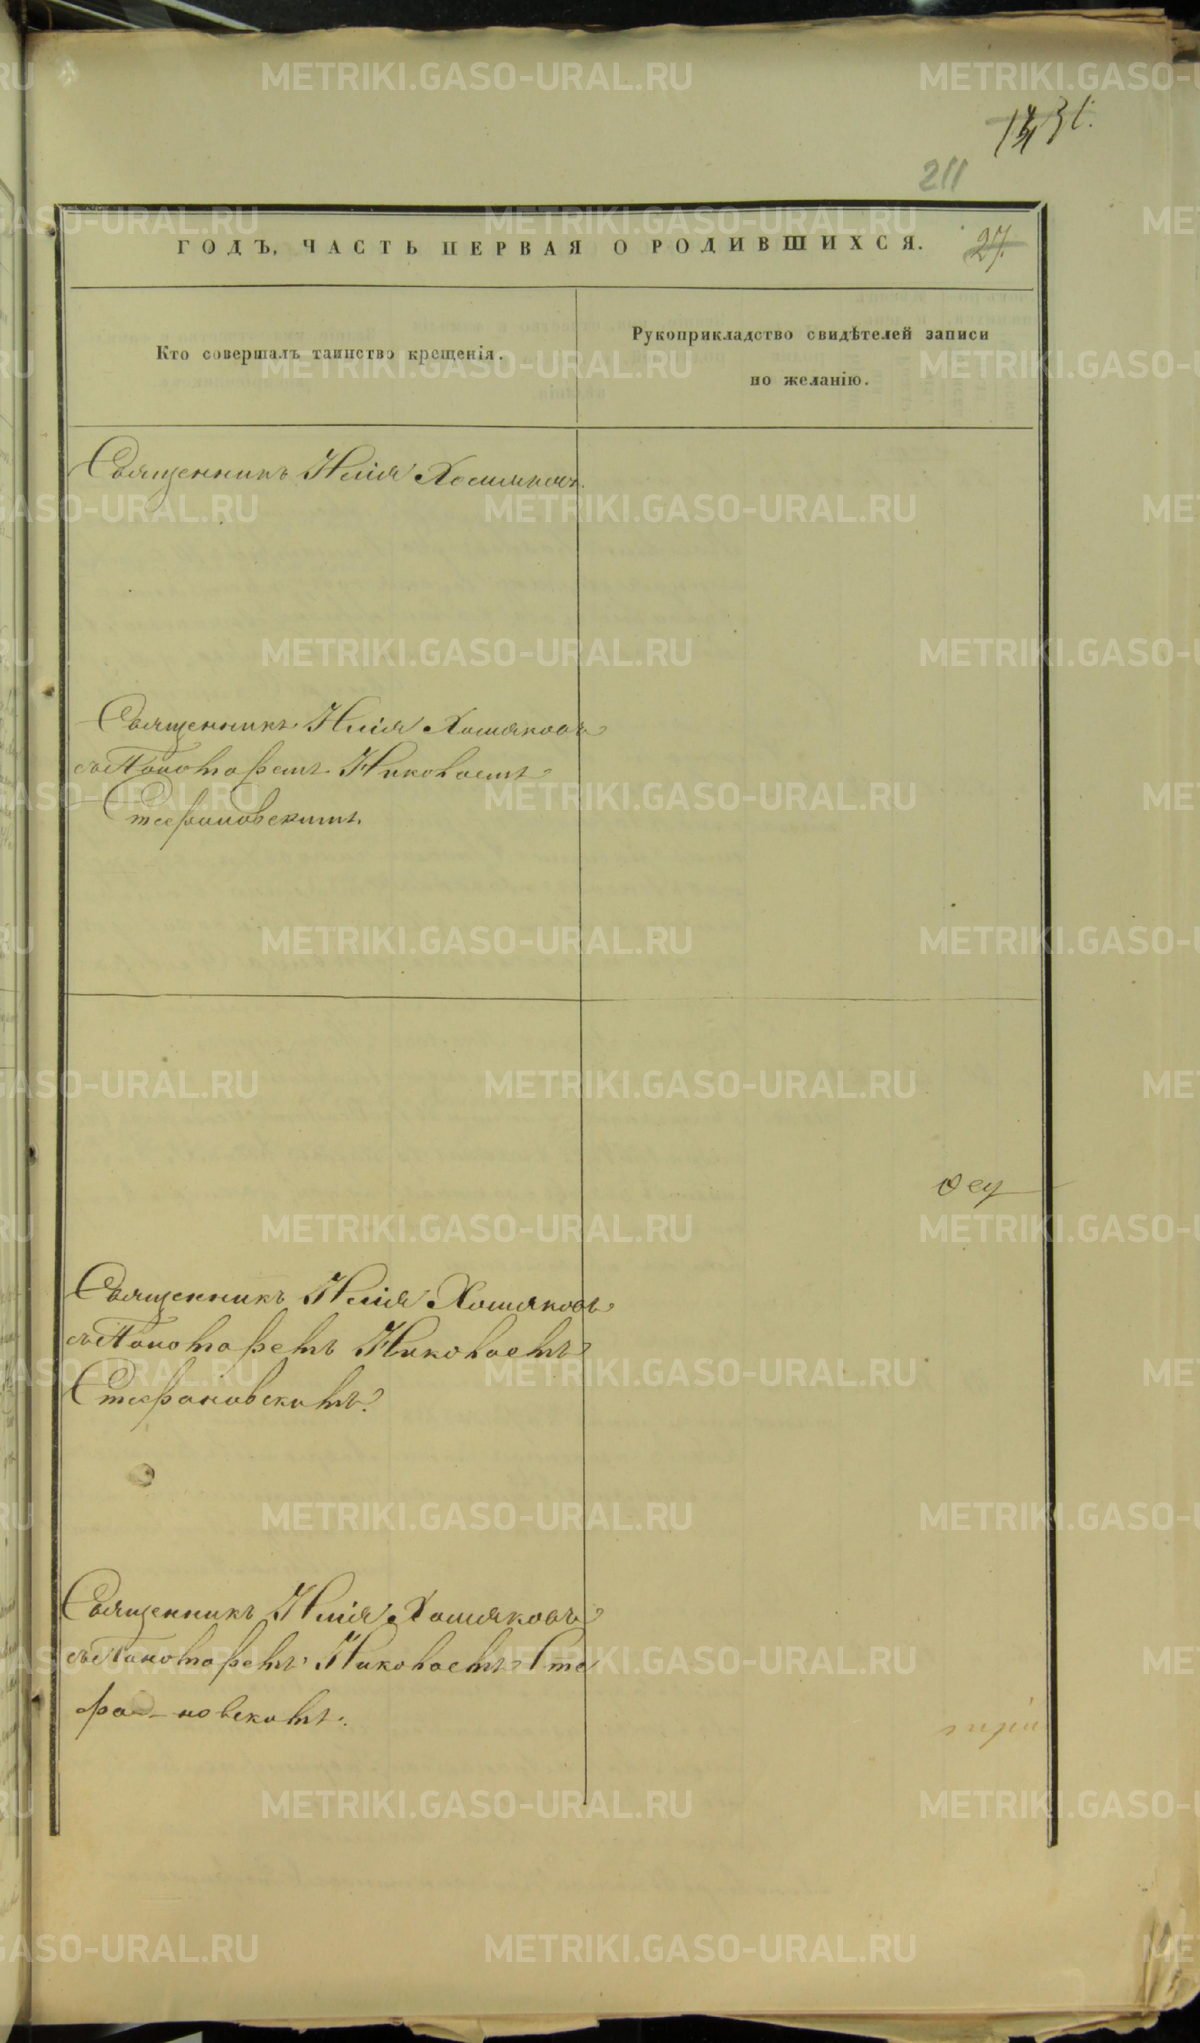 211
ГОДЪ, ЧАСТЬ ПЕРВАЯ О РОДИВШИХСЯ. 27.
Кто совершалъ таинство крещенія.
Рукоприкладство свидѣтелей записи
по желанію.
Священникъ Илія Хомяковъ.
Священникъ Илія Хомяковъ
съ Пономаремъ Николаемъ
Стефановскимъ.
Священникъ Илія Хомяковъ
съ Пономаремъ Николаемъ
Стефановскимъ.
Священникъ Илія Хомяковъ
съ Пономаремъ Николаемъ Сте
фа-новскимъ.
METRIKI.GASO-URAL.RU